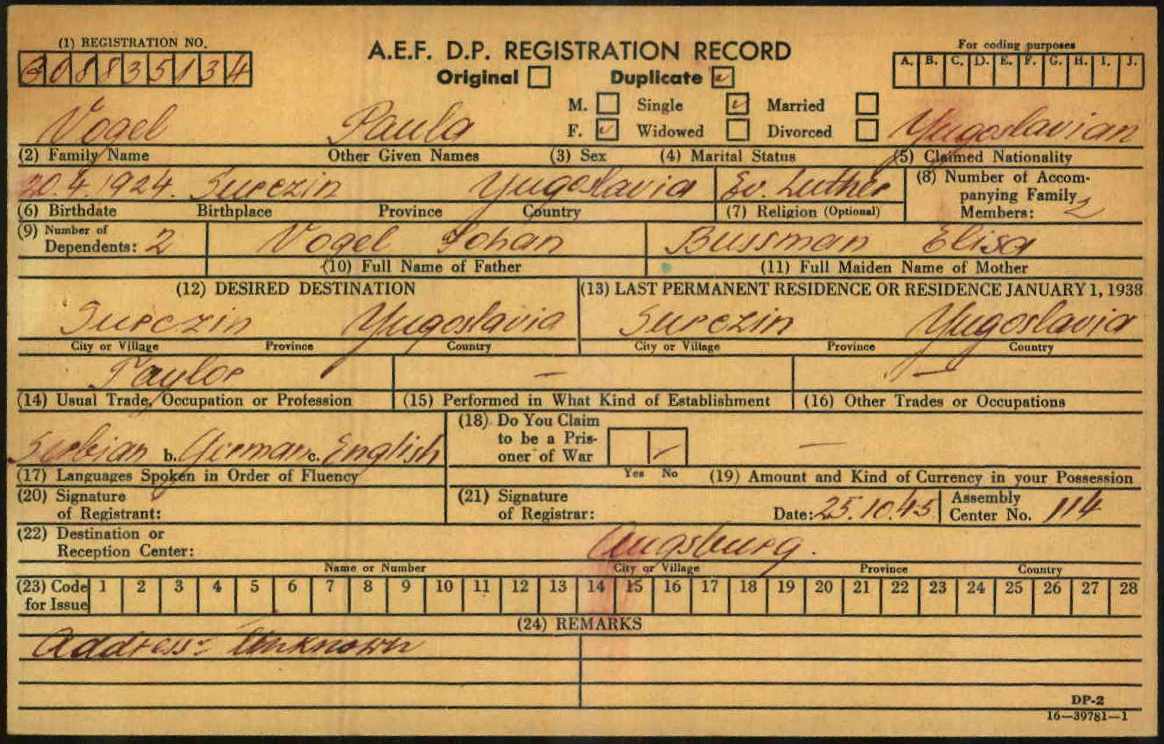 (1) REGISTRATION NO.
G08835134
A.E.F. D.P. REGISTRATION RECORD
Original Duplicate
For coding purposes
A. B. C. D. E. F. G. H. I. J.
M. Single Married
F. Widowed Divorced
Vogel Paula Yugoslavian
(2) Family Name Other Given Names (3) Sex (4) Marital Status (5) Claimed Nationality
20.4.1924. Surczin Yugoslavia Ev. Luther
(8) Number of Accompanying Family Members: 2
(6) Birthdate Birthplace Province Country (7) Religion (Optional)
(9) Number of Dependents: 2 Vogel Johan Bussman Elisa
(10) Full Name of Father (11) Full Maiden Name of Mother
(12) DESIRED DESTINATION (13) LAST PERMANENT RESIDENCE OR RESIDENCE JANUARY 1, 1938
Surczin Yugoslavia Surczin Yugoslavia
City or Village Province Country City or Village Province Country
Taylor — —
(14) Usual Trade, Occupation or Profession (15) Performed in What Kind of Establishment (16) Other Trades or Occupations
Serbian b. German c. English
(18) Do You Claim to be a Prisoner of War
Yes No
—
(17) Languages Spoken in Order of Fluency (19) Amount and Kind of Currency in your Possession
(20) Signature of Registrant:
(21) Signature of Registrar: Date: 25.10.45 Assembly Center No. 114
(22) Destination or Reception Center: Augsburg.
Name or Number City or Village Province Country
(23) Code for Issue 1 2 3 4 5 6 7 8 9 10 11 12 13 14 15 16 17 18 19 20 21 22 23 24 25 26 27 28
(24) REMARKS
Address: Unknown
DP-2
16—39781—1